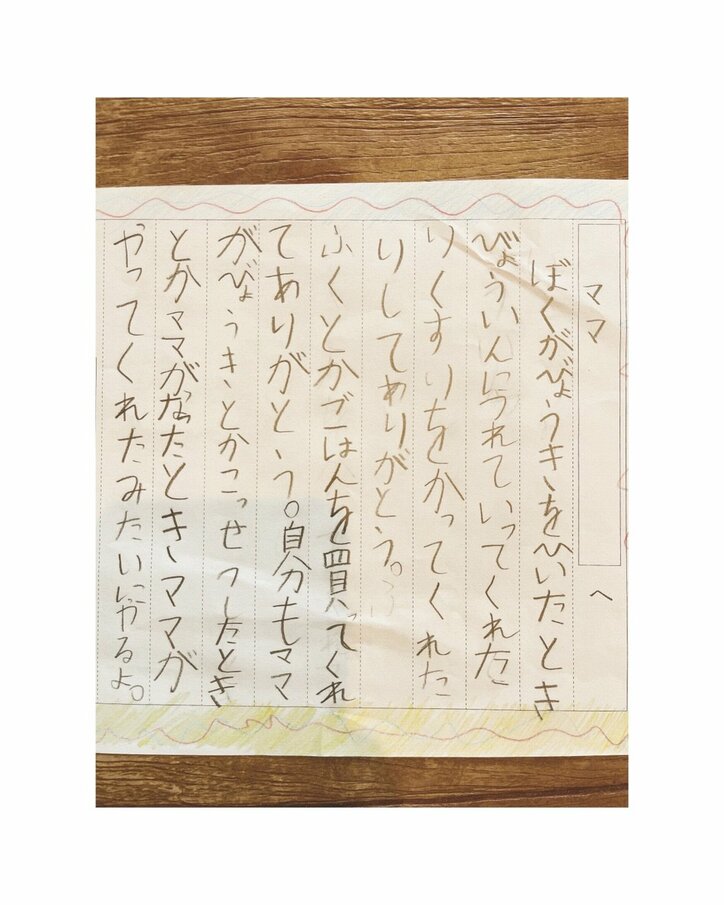 ママ へ
ぼくがびょうきをひいたとき
びょういんにつれていってくれた
りくすりをかってくれた
りしてありがとう。
ふくとかごはんを買ってくれ
てありがとう。自分もママ
がびょうきとかこっせつしたとき
とかママがなったときママが
やってくれたみたいにやるよ。